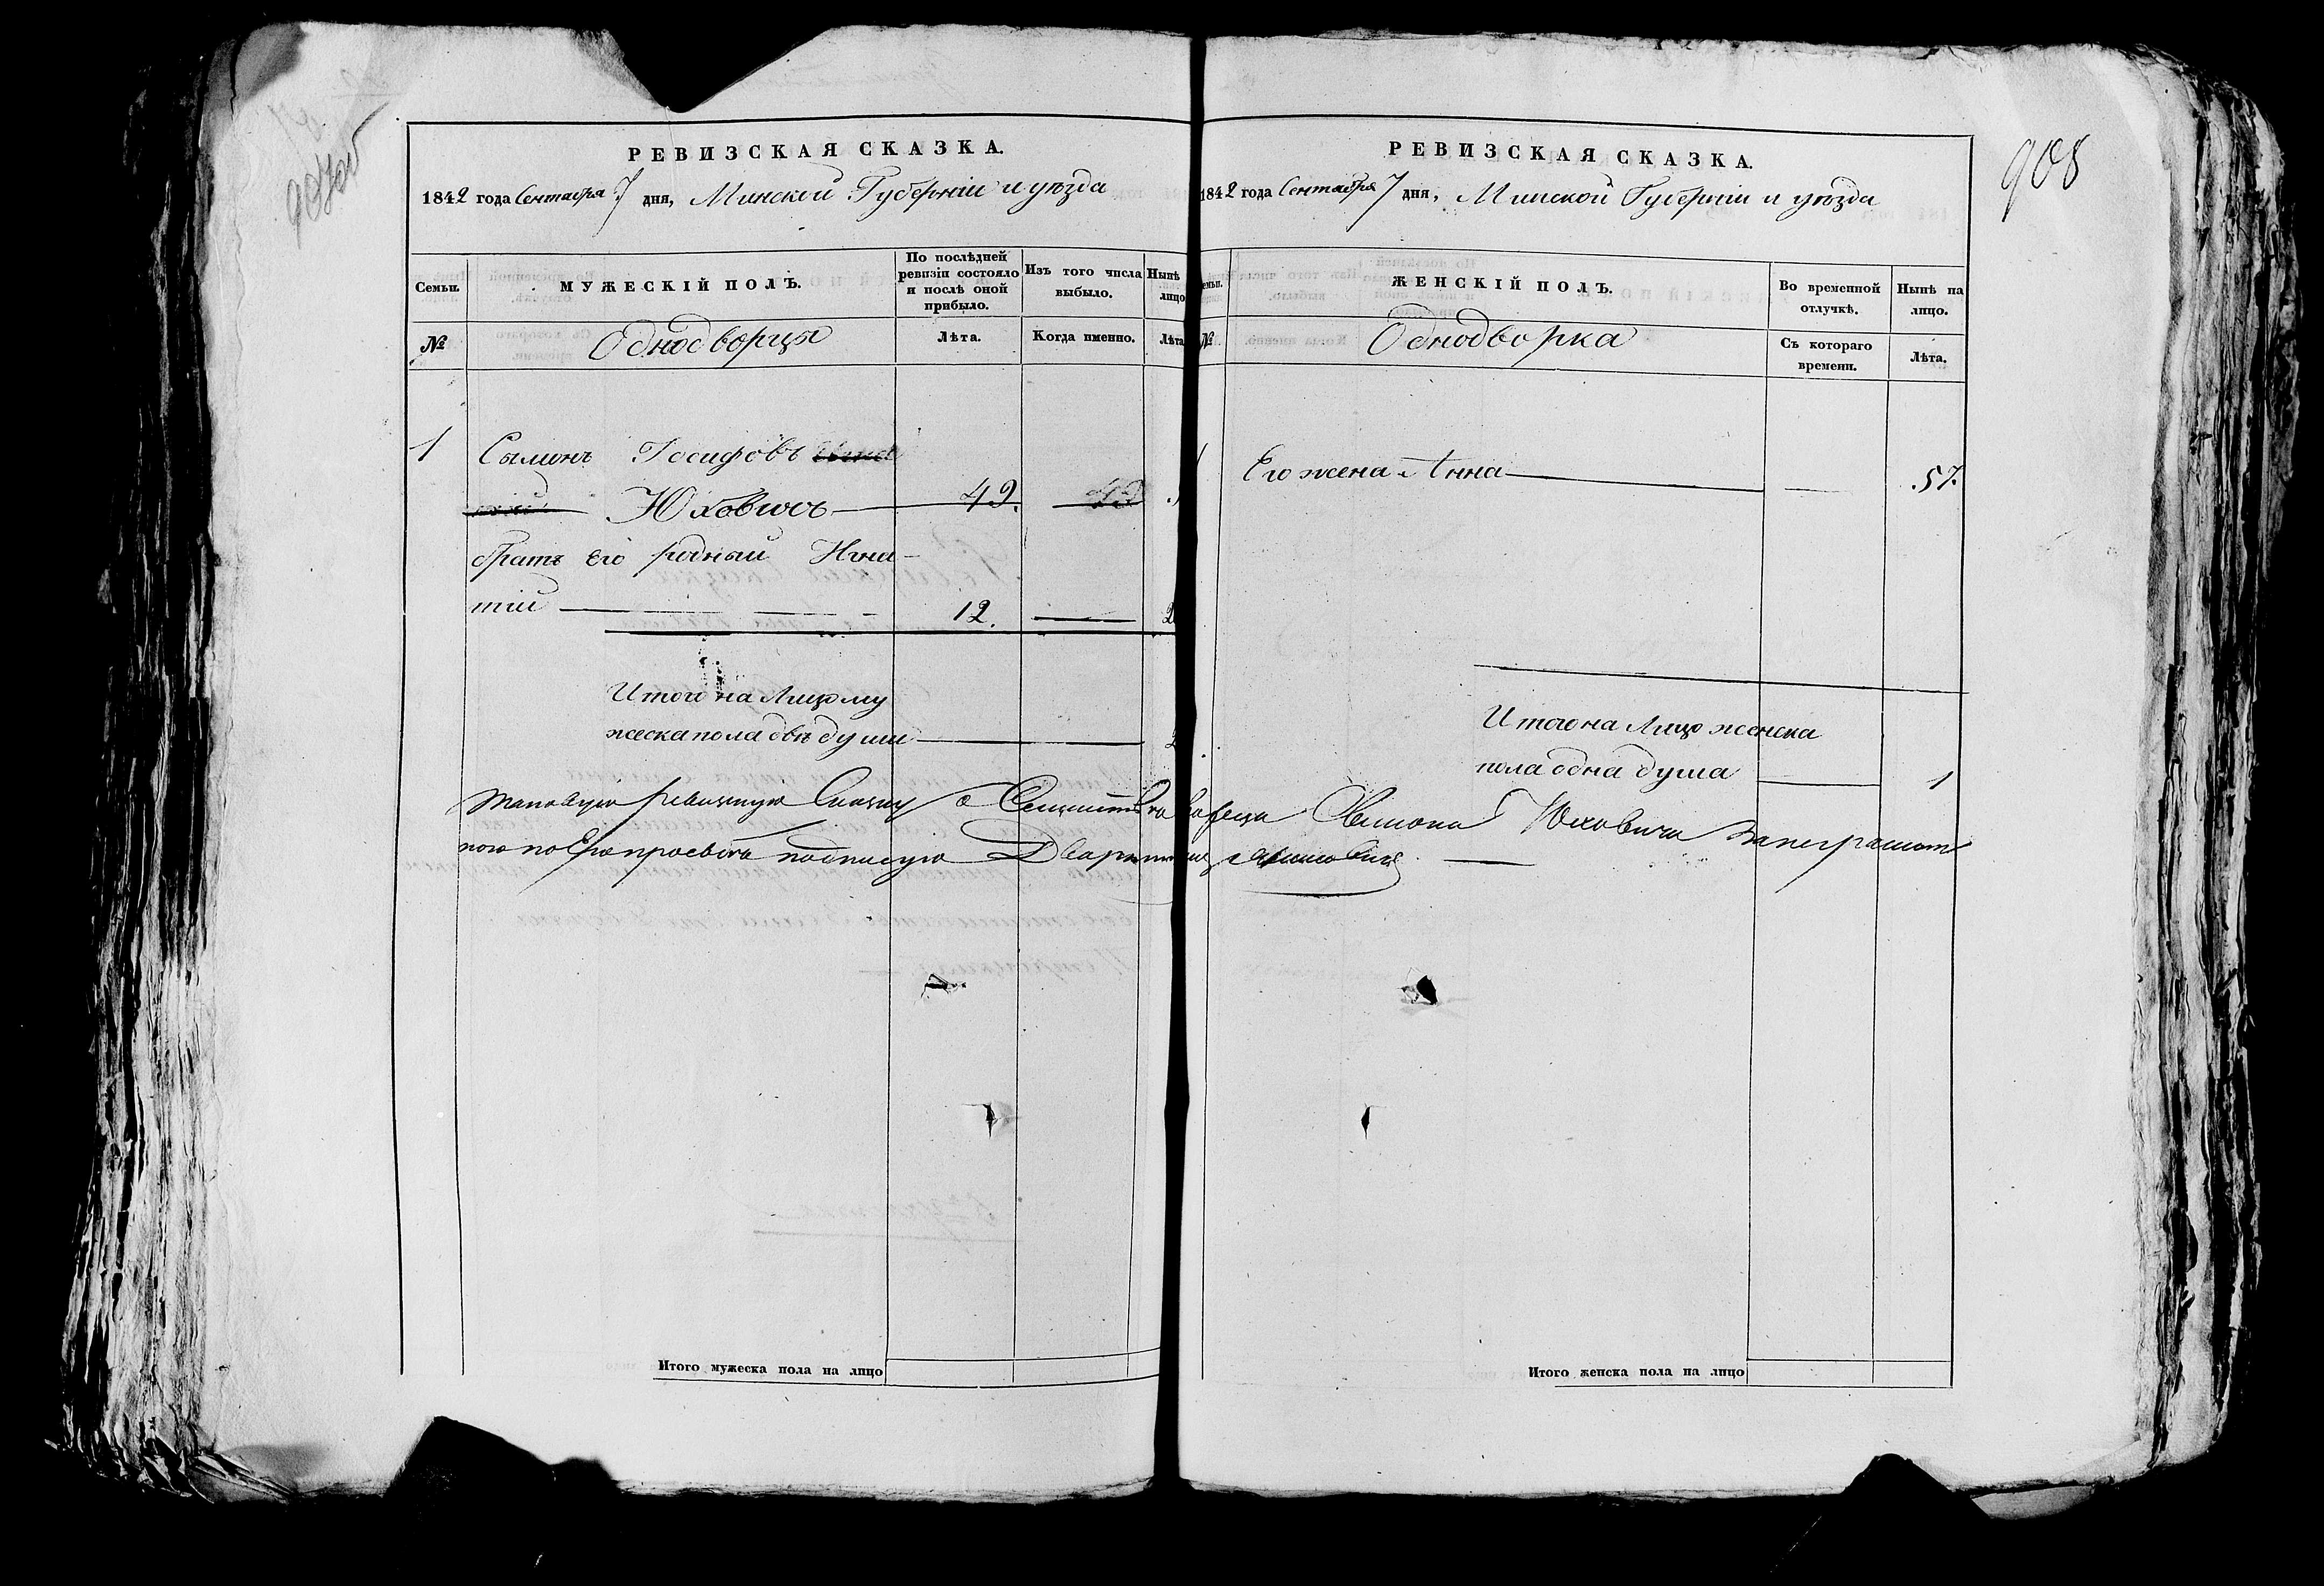 908
РЕВИЗСКАЯ СКАЗКА.
1842 года Сентября 7 дня, Минской Губерніи и уѣзда
Семьи.
МУЖЕСКІЙ ПОЛЪ.
По послѣдней ревизіи состояло и послѣ оной прибыло.
Изъ того числа выбыло.
Нынѣ
лицо
№
Однодворцы
Лѣта.
Когда именно.
Лѣта
1 Сымонъ Іосифовъ
Юховичъ 49.
братъ его родный Игна-
тій 12. 2
Итого на Лицо му
жеска пола двѣ души 2
РЕВИЗСКАЯ СКАЗКА.
1842 года Сентября 7 дня, Минской Губерніи и уѣзда
№
ЖЕНСКІЙ ПОЛЪ.
Во временной отлучкѣ.
Нынѣ на лицо.
Однодворка
Съ котораго времени.
Лѣта.
Его жена Анна 57.
Итого на Лицо женска
пола одна душа 1
таковую ревизскую Сказку Юховича
по Его прозьбѣ подписую Дворянинъ
Итого мужеска пола на лицо
Итого женска пола на лицо